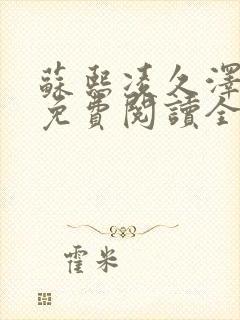 蘇熙凌久澤
免費閱讀全
霍米